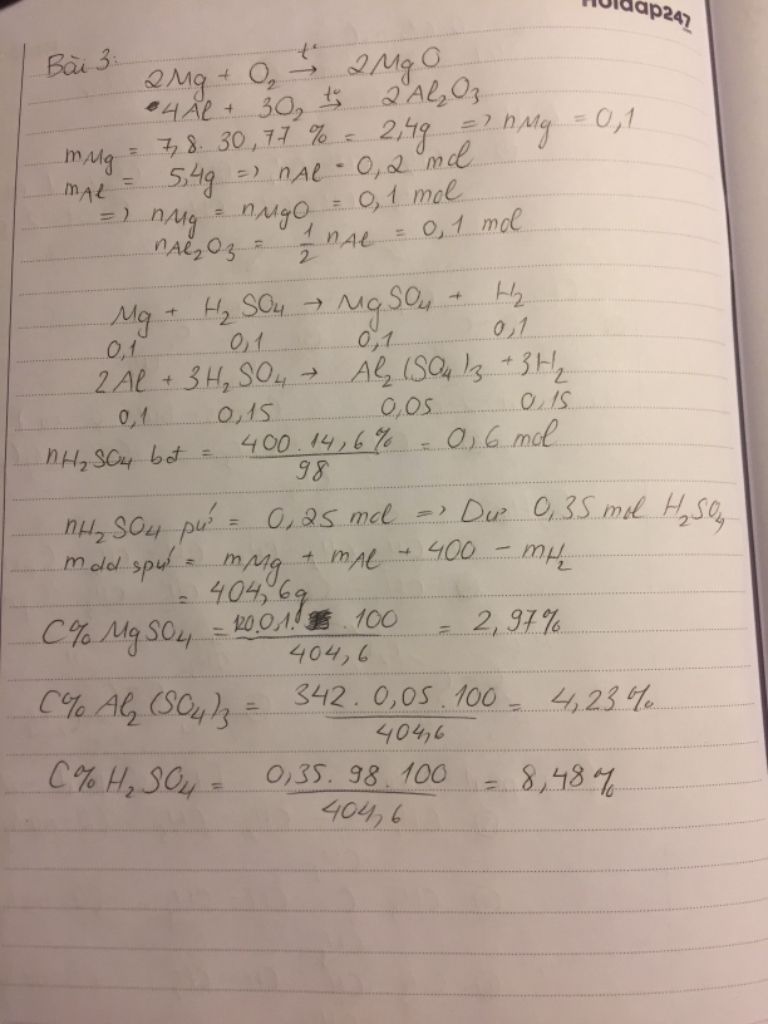 Hoidap247
Bài 3:
2Mg + O₂ →(t°) 2MgO
4Al + 3O₂ →(t°) 2Al₂O₃
mMg = 7,8 . 30,77 % = 2,4g => nMg = 0,1
mAl = 5,4g => nAl = 0,2 mol
=> nMg = nMgO = 0,1 mol
nAl₂O₃ = 1/2 nAl = 0,1 mol
Mg + H₂SO₄ → MgSO₄ + H₂
0,1 0,1 0,1 0,1
2Al + 3H₂SO₄ → Al₂(SO₄)₃ + 3H₂
0,1 0,15 0,05 0,15
nH₂SO₄ bđ = (400 . 14,6 %)/98 = 0,6 mol
nH₂SO₄ pứ = 0,25 mol => Dư 0,35 mol H₂SO₄
mdd spứ = mMg + mAl + 400 - mH₂
= 404,6g
C% MgSO₄ = (120.0,1. 100)/404,6 = 2,97%
C% Al₂(SO₄)₃ = (342 . 0,05 . 100)/404,6 = 4,23 %
C% H₂SO₄ = (0,35 . 98 . 100)/404,6 = 8,48 %